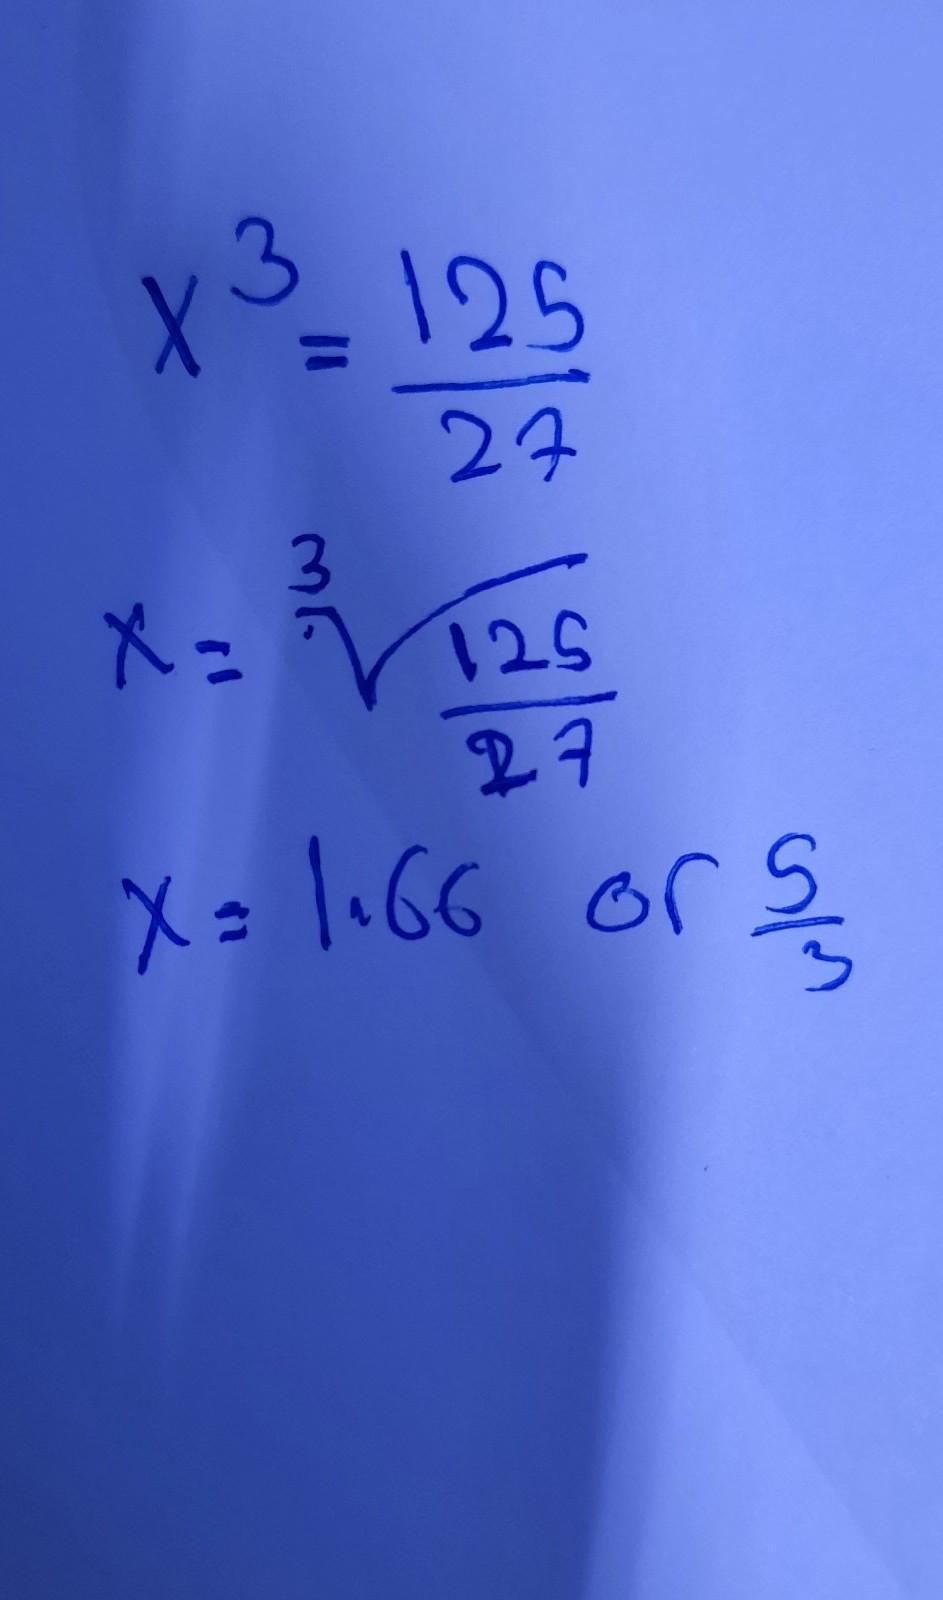 x³ = 125/27
x = ³√125/27
x = 1.66 or 5/3